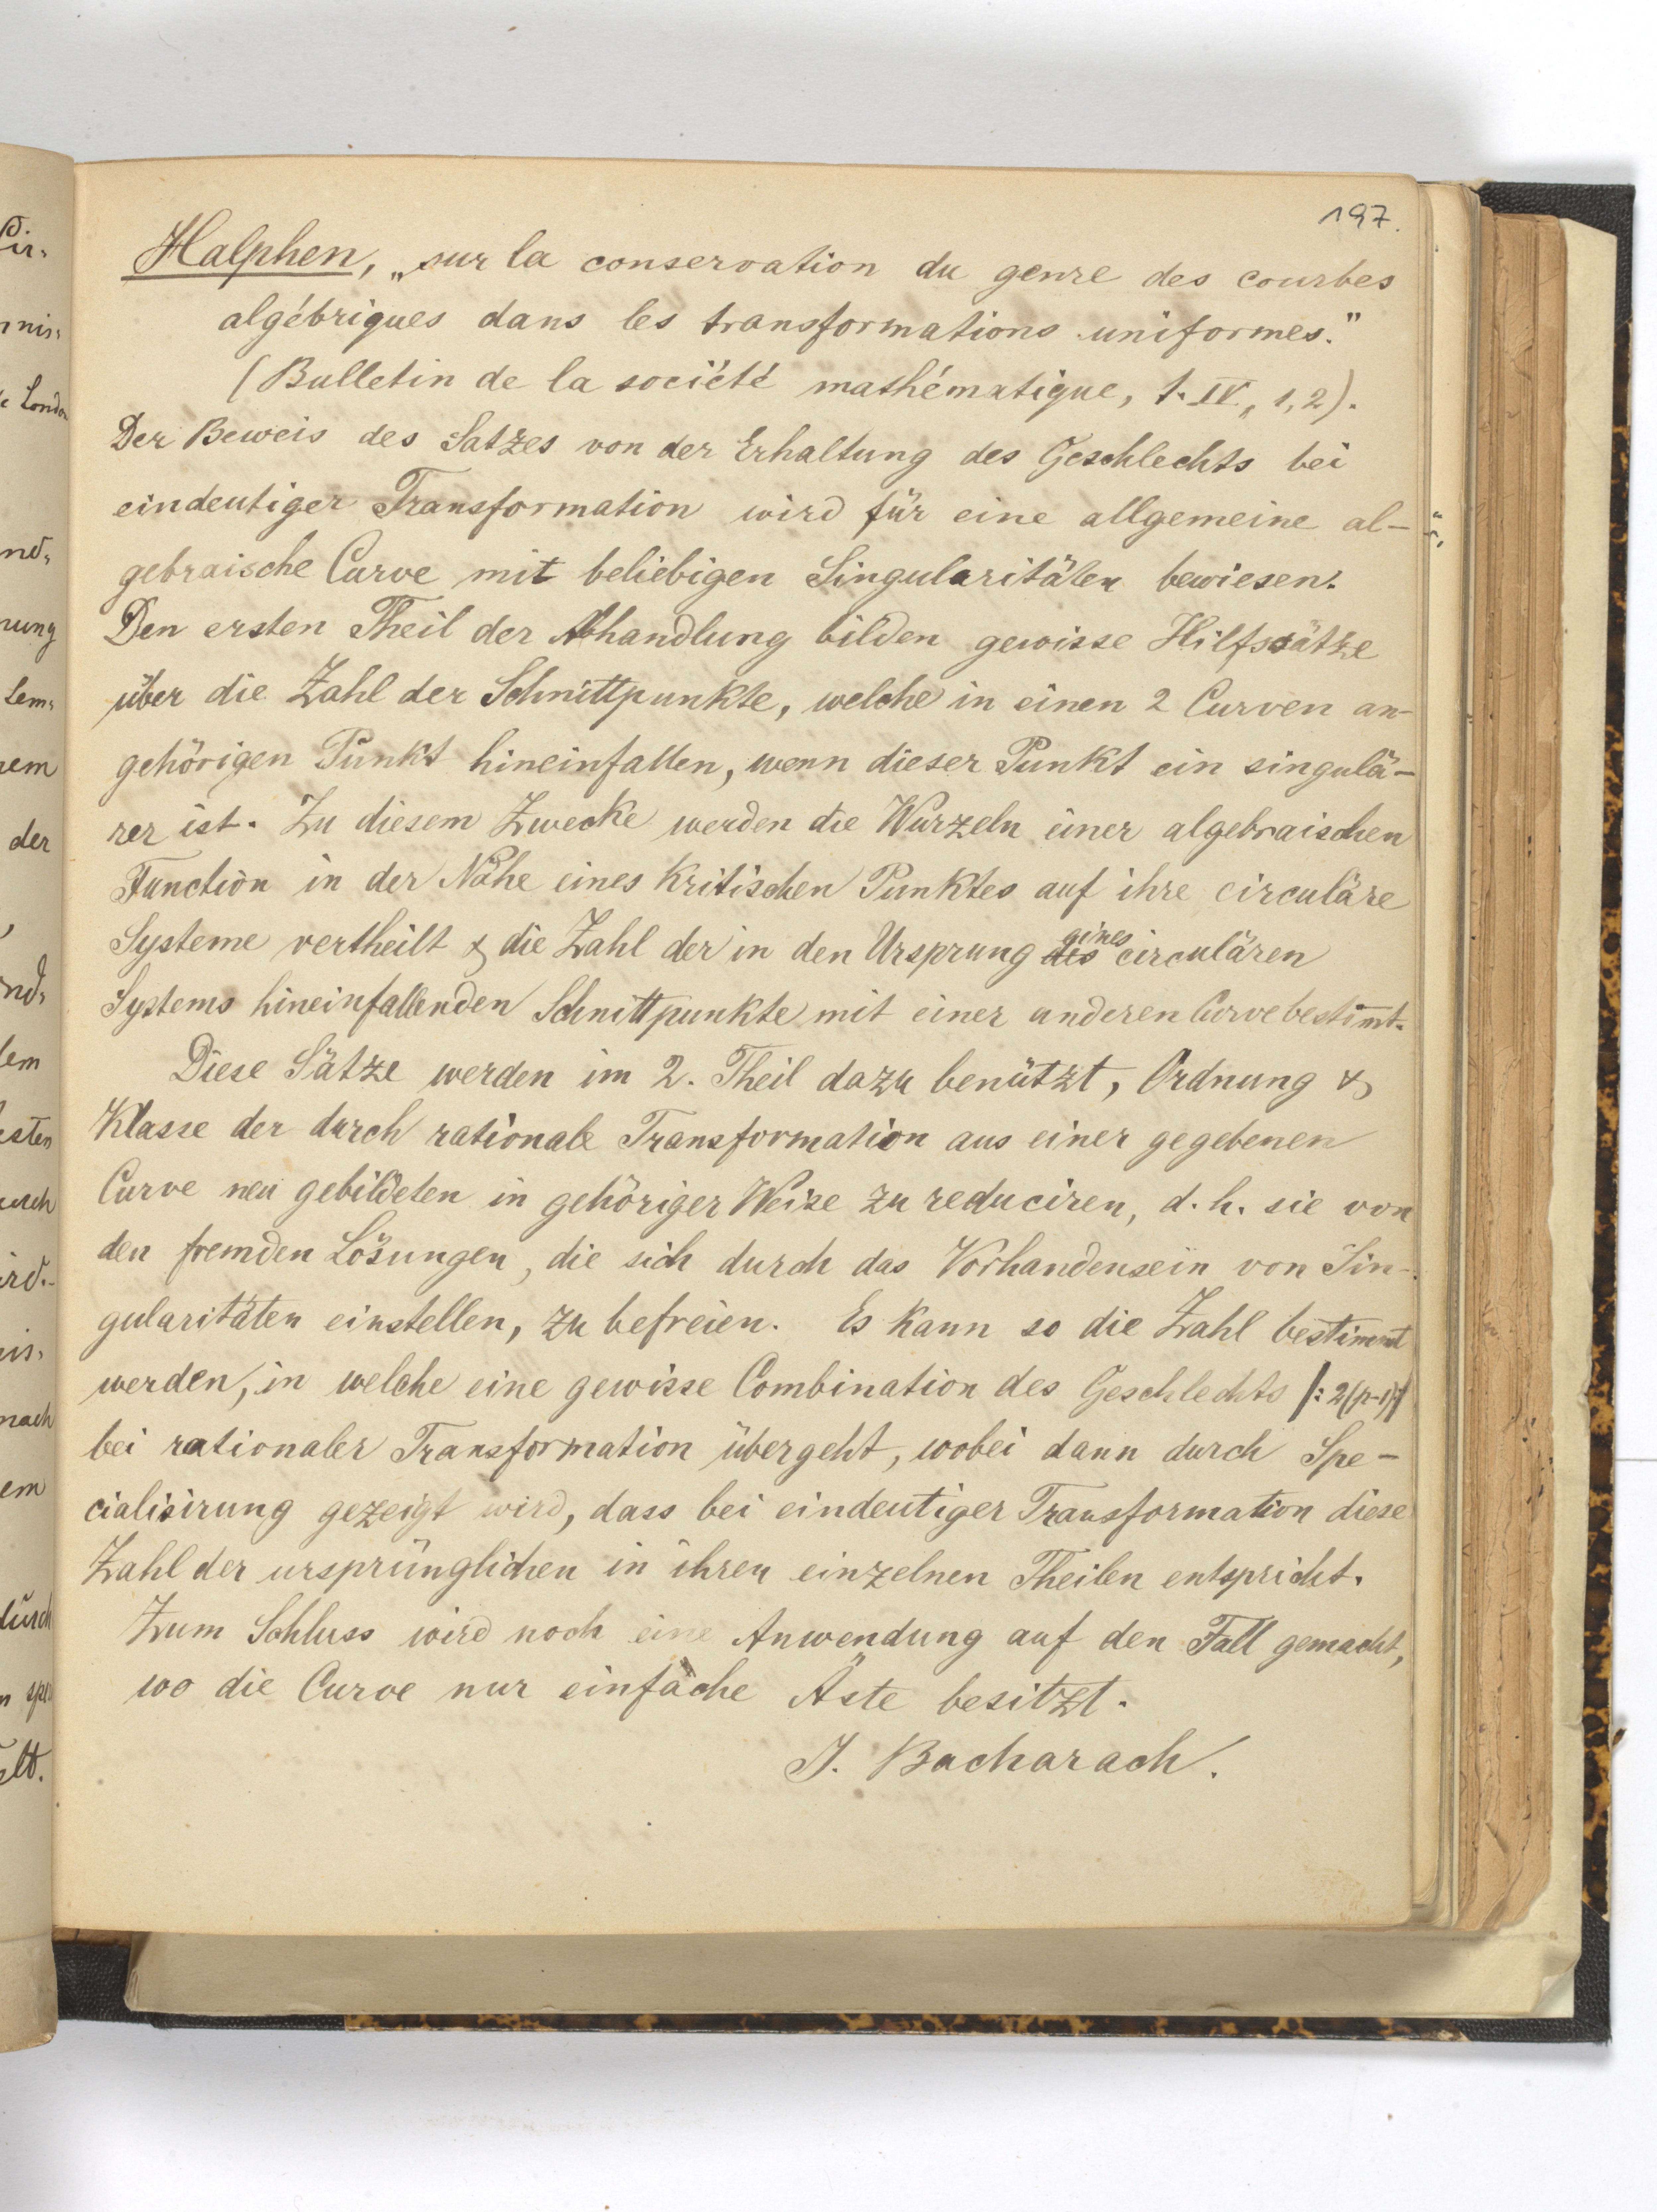 197.
Halphen, „sur la conservation du genre des courbes
algébriques dans les transformations uniformes."
(Bulletin de la société mathématique, t. IV, 1, 2).
Der Beweis des Satzes von der Erhaltung des Geschlechts bei
eindeutiger Transformation wird für eine allgemeine al-
gebraische Curve mit beliebigen Singularitäten bewiesen.
Den ersten Theil der Abhandlung bilden gewisse Hilfssätze
über die Zahl der Schnittpunkte, welche in einen 2 Curven an-
gehörigen Punkt hineinfallen, wenn dieser Punkt ein singulä-
rer ist. Zu diesem Zwecke werden die Wurzeln einer algebraischen
Function in der Nähe eines kritischen Punktes auf ihre circuläre
Systeme vertheilt & die Zahl der in den Ursprung des eines circulären
Systems hineinfallenden Schnittpunkte mit einer anderen Curve bestimt.
Diese Sätze werden im 2. Theil dazu benützt, Ordnung &
Klasse der durch rationale Transformation aus einer gegebenen
Curve neu gebildeten in gehöriger Weise zu reduciren, d. h. sie von
den fremden Lösungen, die sich durch das Vorhandensein von Sin-
gularitäten einstellen, zu befreien. Es kann so die Zahl bestimmt
werden, in welche eine gewisse Combination des Geschlechts |: 2(p-1) :|
bei rationaler Transformation übergeht, wobei dann durch Spe-
cialisirung gezeigt wird, dass bei eindeutiger Transformation diese
Zahl der ursprünglichen in ihren einzelnen Theilen entspricht.
Zum Schluss wird noch eine Anwendung auf den Fall gemacht,
wo die Curve nur einfache Äste besitzt.
J. Bacharach.